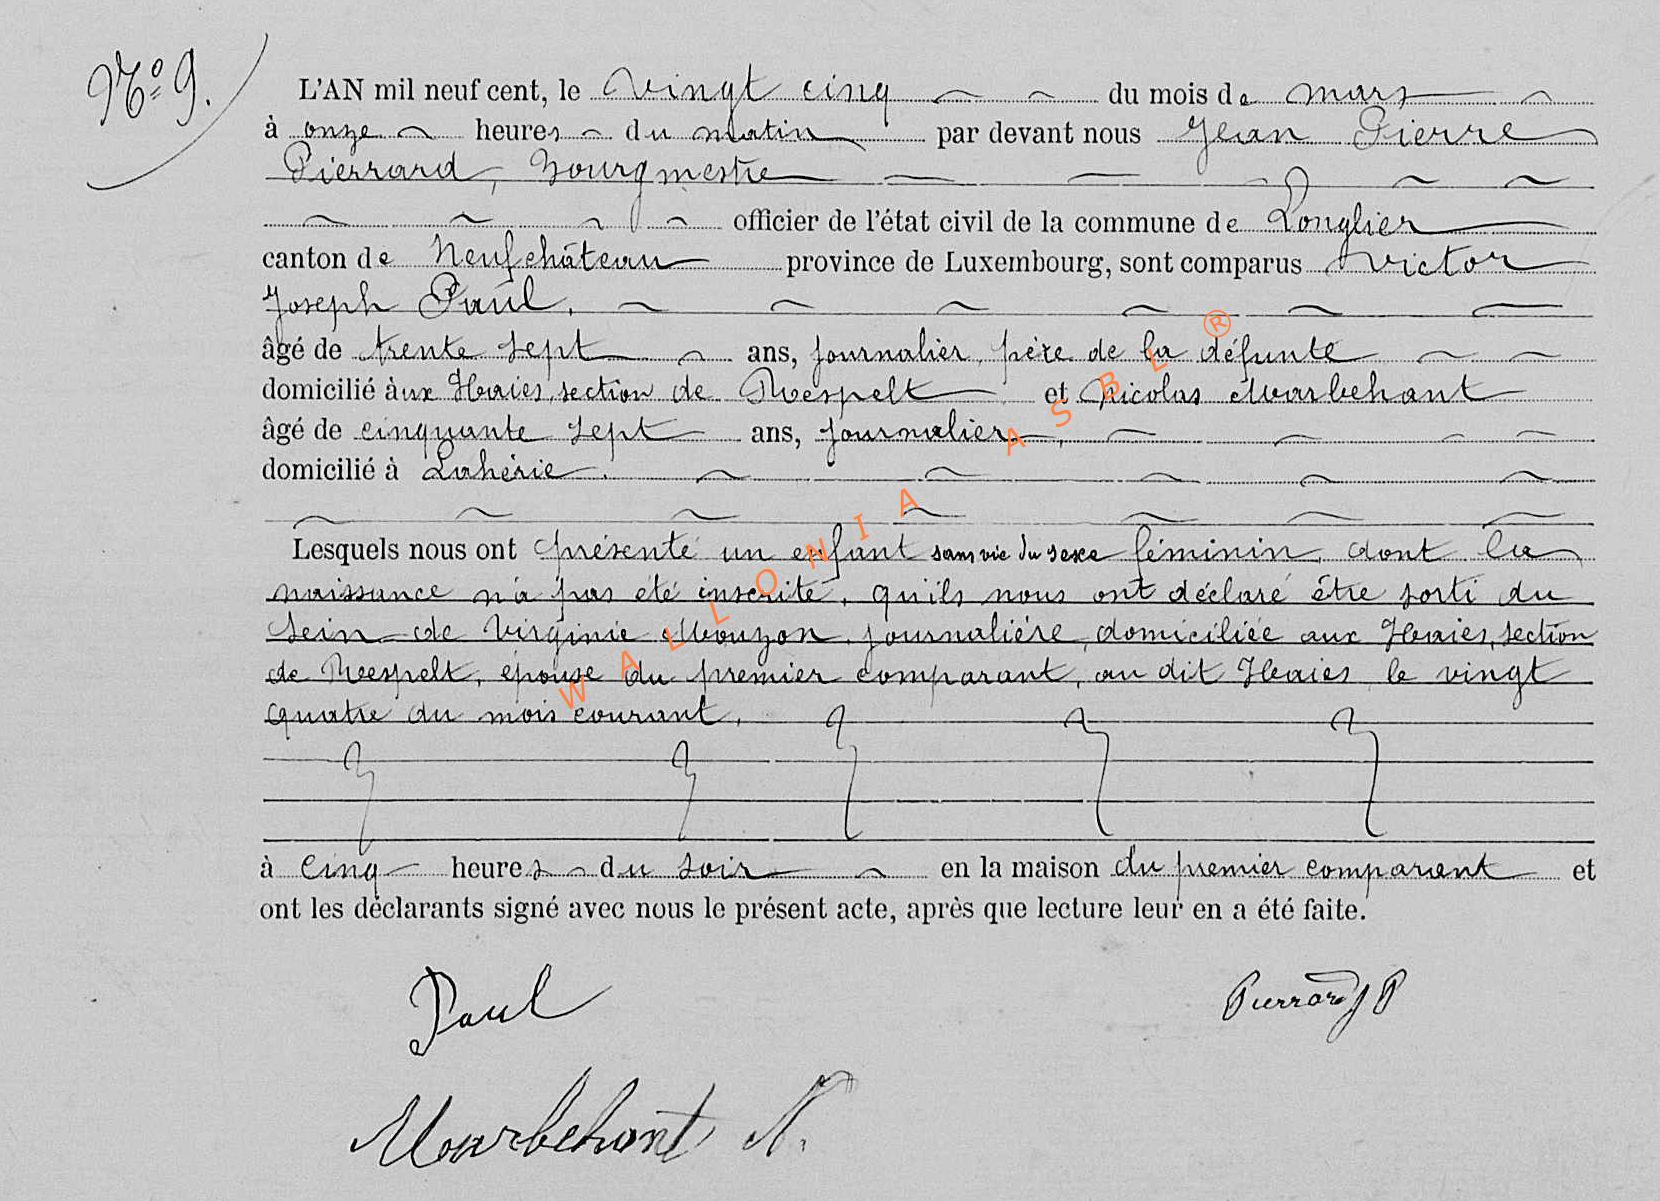 No 9.
L'AN mil neuf cent, le vingt cinq du mois de mars
à onze heures du matin par devant nous Jean Pierre
Pierrard, bourgmestre
officier de l'état civil de la commune de Longlier
canton de Neufchâteau province de Luxembourg, sont comparus Victor
Joseph Paul,
âgé de trente sept ans, journalier, père de la défunte
domicilié aux Haies, section de Respelt et Nicolas Marbehant
âgé de cinquante sept ans, journalier,
domicilié à Lahérie.
Lesquels nous ont présenté un enfant sans vie du sexe féminin, dont la
naissance n'a pas été inscrite, qu'ils nous ont déclaré être sorti du
sein de Virginie Mouzon, journalière, domiciliée aux Haies, section
de Respelt, épouse du premier comparant, au dit Haies le vingt
quatre du mois courant,
à cinq heures du soir en la maison du premier comparant et
ont les déclarants signé avec nous le présent acte, après que lecture leur en a été faite.
Paul Pierrard J P
Marbehant N.
WALLONIA ASBL ®